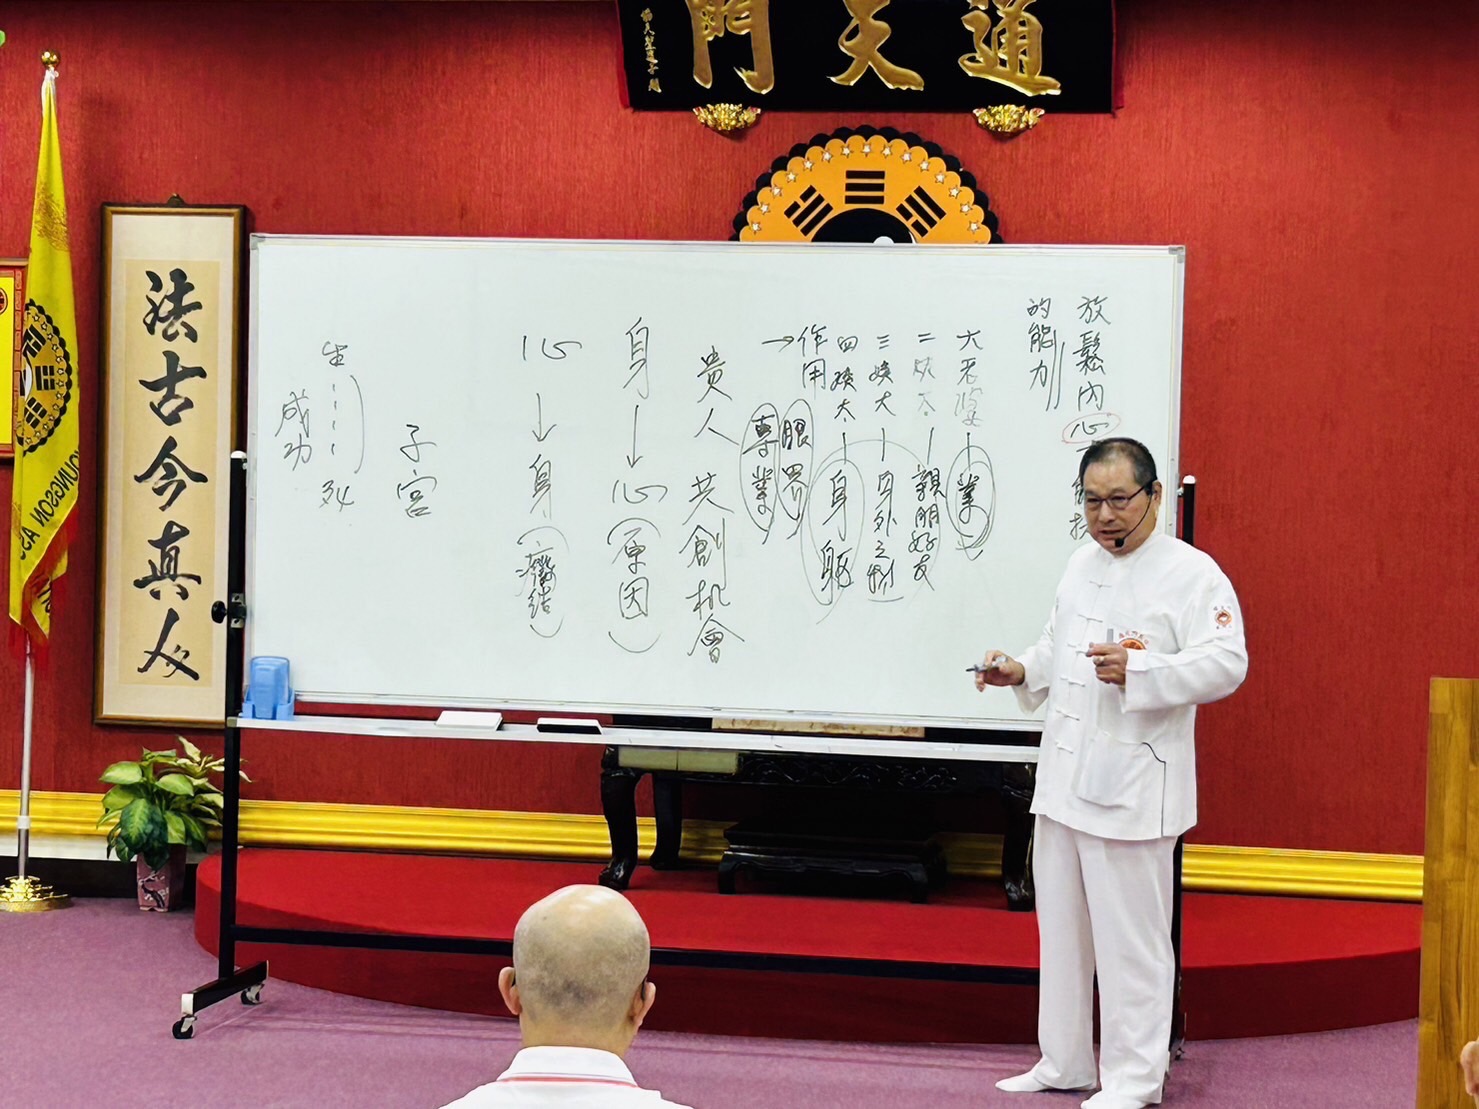 通天門
法古今真人
放鬆內心
的能力
大老婆—業
二姨太—親朋好友
三姨太—身外之物
四姨太—身軀
→作用
眼界
專業
貴人 共創機會
身→心(原因)
心→身(癥結)
子宮
生 死
成功